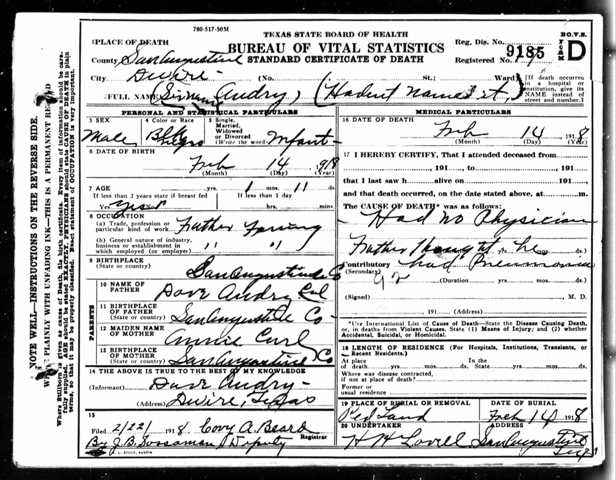 780-517-50M
TEXAS STATE BOARD OF HEALTH
BUREAU OF VITAL STATISTICS
STANDARD CERTIFICATE OF DEATH
B.O.V.S.
FORM
D
Reg. Dis. No. 9185
Registered No.
1 PLACE OF DEATH
County San Augustine
City Dwire (No. St.; Ward)
[If death occurred in a hospital or institution, give its NAME instead of street and number.]
2 FULL NAME (Sirname Audry) (Hadent named it,)
PERSONAL AND STATISTICAL PARTICULARS
3 SEX
Male
4 Color or Race
Blk
Negro
5 Single, Married, Widowed or Divorced (Write the word)
Infant
6 DATE OF BIRTH
Feb 14 918
(Month) (Day) (Year)
7 AGE
yrs. 1 mos. 11 ds.
If less than 2 years state if breast fed
If less than 1 day
Yes hrs. mins.
8 OCCUPATION
(a) Trade, profession or particular kind of work Father Farming
(b) General nature of industry, business or establishment in which employed (or employer) " "
9 BIRTHPLACE
(State or country) San Augustine Co
PARENTS
10 NAME OF FATHER Dave Audry Col
11 BIRTHPLACE OF FATHER
(State or country) San Augustine Co
12 MAIDEN NAME OF MOTHER Annie Curl
13 BIRTHPLACE OF MOTHER
(State or country) San Augustine Co
14 THE ABOVE IS TRUE TO THE BEST OF MY KNOWLEDGE
(Informant) Dave Audry
(Address) Dwire, Texas
15
Filed 2/22 1918 Covy A. Beard
Registrar
By J.B. Sossaman Deputy
MEDICAL PARTICULARS
16 DATE OF DEATH
Feb 14 1918
(Month) (Day) (Year)
17 I HEREBY CERTIFY, That I attended deceased from
, 191 , to , 191
that I last saw h alive on , 191
and that death occurred, on the date stated above, at m.
The CAUSE OF DEATH* was as follows:
Had no Physician
Father thought he
Contributory had Pneumonia
(Secondary)
92
(Duration) yrs. mos. ds.
(Signed) , M. D.
, 191 (Address)
*Use International List of Cause of Death—State the Disease Causing Death, or, in deaths from Violent Causes, State (1) Means of Injury; and (2) whether Accidental, Suicidal, or Homicidal.
18 LENGTH OF RESIDENCE (For Hospitals, Institutions, Transients, or Recent Residents.)
At place of death yrs. mos. ds. In the State yrs. mos. ds.
Where was disease contracted, if not at place of death?
Former or usual residence
19 PLACE OF BURIAL OR REMOVAL
DATE OF BURIAL
Feb 14 1918
20 UNDERTAKER
H H Lovell San Augustine
NOTE WELL—INSTRUCTIONS ON THE REVERSE SIDE.
WRITE PLAINLY WITH UNFADING INK—THIS IS A PERMANENT RECORD